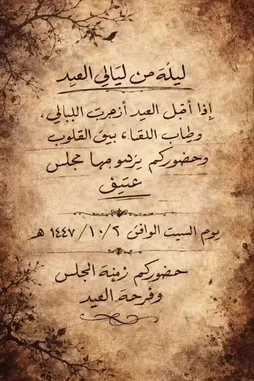 ليلة من ليالي العيد
إذا أقبل العيد أزهرت الليالي،
وطاب اللقاء بين القلوب
وحضوركم يزهو بها مجلس
عتيق
يوم السبت الوافق ١٤٤٧/١٠/٢ هـ
حضوركم زينة المجلس
وفرحة العيد